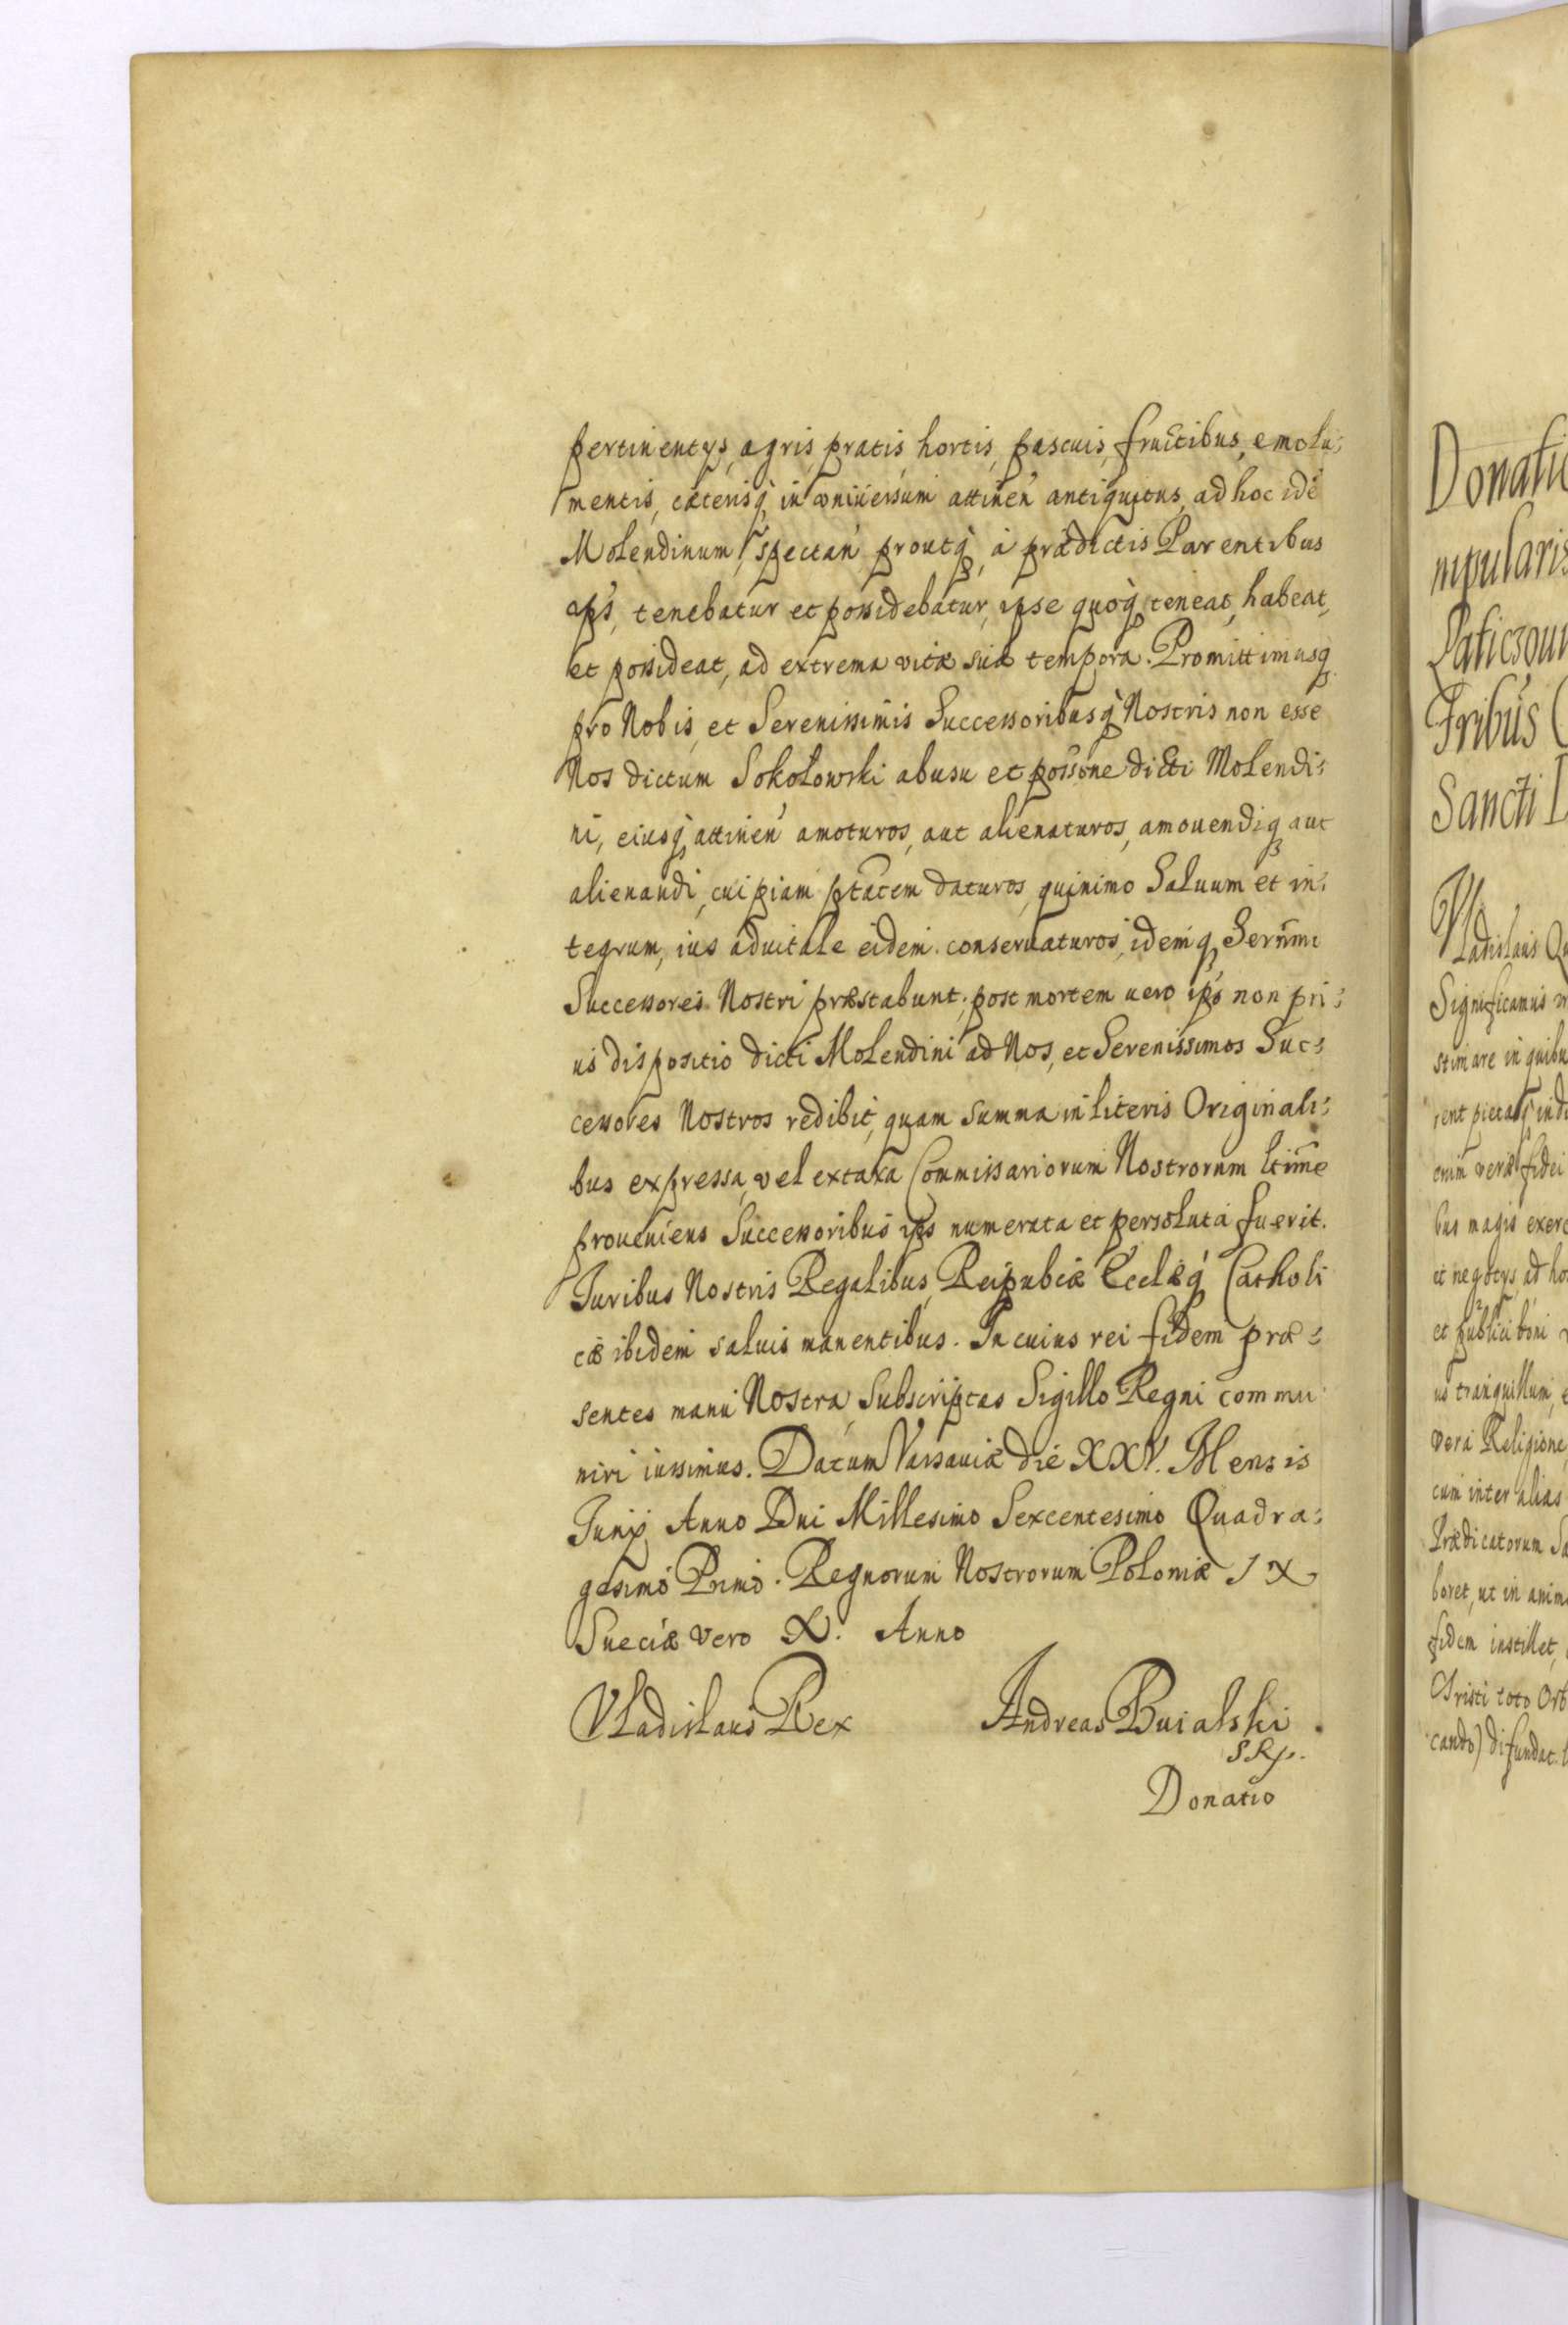 pertinentys, agris, pratis hortis, pascuis, fructibus, emolu:
mentis, cæterisq, in vniuersum attinen antiquitus, ad hoc idé
Molendinum, spectan proutq, à prædictis Parentibus
ips, tenebatur et possidebatur, ipse quoq teneat, habeat,
et possideat, ad extrema vitæ suæ tempora. Promittimusq
pro Nobis, et Serenissimis Successoribusq Nostris non esse
Nos dictum Sokołowski abusu et possone dicti Molendi:
ni, eiusq attinen amoturos, aut alienaturos, amouendiq aut
alienandi, cuipiam ptatem daturos, quinimo Saluum et in:
tegrum, ius aduitale eidem conseruaturos, idemq Serñmi
Successores Nostri præstabunt; post mortem uero ips non pri:
us dispositio dicti Molendini ad Nos, et Serenissimos Suc:
cessores Nostros redibit, quam summa in literis Originali:
bus expressa, vel extaxa Commissariorum Nostrorum ltime
proueniens Successoribus ips numerata et persoluta fuerit.
Juribus Nostris Regalibus, Reipubcæ Ecclæq Catholi
cæ ibidem saluis manentibus. In cuius rei fidem præ:
sentes manu Nostra, Subscriptas Sigillo Regni commu
niri iussimus. Datum Varsauiæ die XXV. Mensis
Junij Anno Dni Millesimo Sexcentesimo Quadra:
gesimo Primo. Regnorum Nostrorum Poloniæ IX
Sueciæ vero X. Anno
Vladislaus Rex Andreas Buialski.
Donatio
Donatio
nipularis
Fribus
Sancti
Vladislaus
Significamus
stimare in quibu
enim veræ fidei
bus magis exerc
et negotys, ad ho
et publici boni
us tranquillum,
vera Religione
cum inter alias
Prædicatorum Sa
boret, ut in anim
fidem instillet,
Christi toto Orb
cando) difundat.